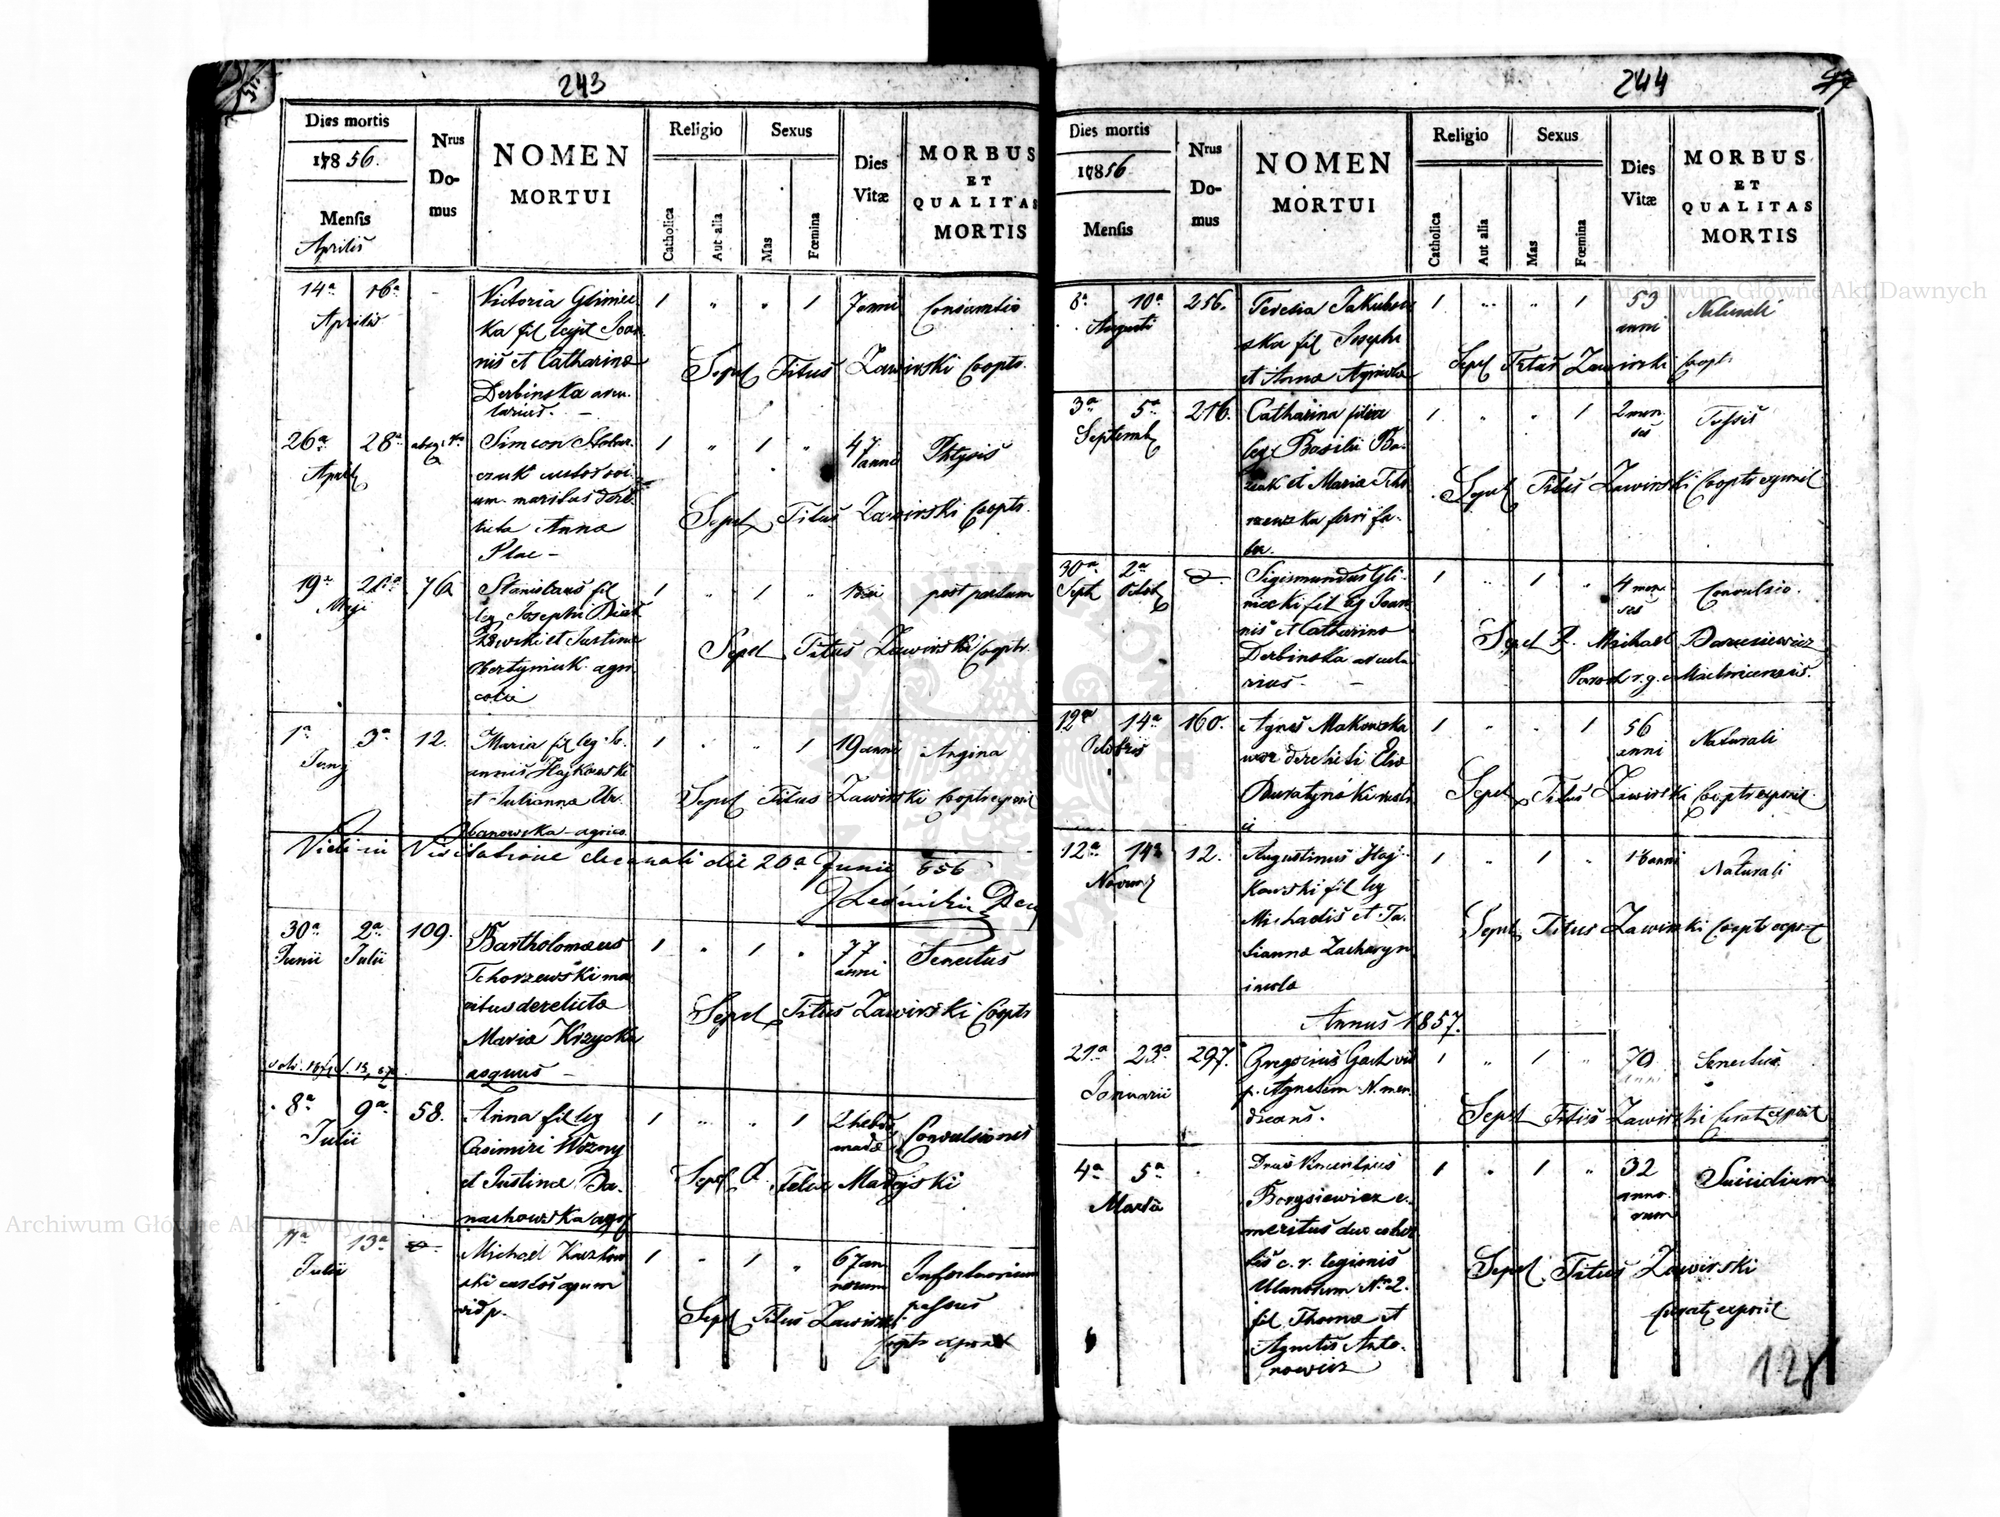 243
Dies mortis
1856.
Mensis
Aprilis
Nrus
Do-
mus
NOMEN
MORTUI
Religio
Catholica
Aut alia
Sexus
Mas
Fœmina
Dies
Vitæ
MORBUS
ET
QUALITAS
MORTIS
14a 16a
Aprilis
-
Victoria Gliniec
ka fil legit Joan
nis et Catharina
Derbinska arcu-
larius. -
1 " " 1
7 anni
Consumtio
Sepel Titus Zawirski Cooptr.
26a 28a
April
Simeon
custos
um maritus dere
licta Anna
Plac -
1 " 1 "
47
anno
Phtysis
Sepel Titus Zawirski Coopts.
19a 21a
Maji
76
Stanislaus fil
leg Josephi
et Justina
agri
colæ
1 " 1 "
1 die
post partum
Sepel Titus Zawirski Cooptr.
1a 3a
Junij
12.
Maria fil leg Jo-
annis Hajkowski
et Julianna Ur-
banowska - agrico
1 " " 1
19 anni
Angina
Sepel Titus Zawirski Cooptr exposit
Vidi in Visitatione decanali die 20a Junii 856
30a 2a
Junii Julii
109.
Bartholomæus
Tchorzewski ma
ritus derelicta
Maria Krzycka
1 " 1 "
77
anni
Senectus
Sepel Titus Zawirski Coopts
8a 9a
Julii
58.
Anna fil leg
Casimiri Wozny
et Justina Da-
nachowska agr
1 " " 1
2 hebdo
madæ
Convulsiones
Sepel Felix Madejski
11a 13a
Julii
Michael
custos apum
vid p.
1 " 1 "
67 an
norum
Infortunium
passus
Sepel Titus Zawirski
Cooptr exposit
244
Dies mortis
1856
Mensis
Nrus
Do-
mus
NOMEN
MORTUI
Religio
Catholica
Aut alia
Sexus
Mas
Fœmina
Dies
Vitæ
MORBUS
ET
QUALITAS
MORTIS
8a 10a
Augusti
256.
Teresia Jakubow
ska fil Josephi
et Anna
1 " " 1
53
anni
Naturali
Sepel Titus Zawirski Coopt.
3a 5a
Septemb
216.
Catharina filia
leg Basilii Ba-
et Maria Tcho
rzewska ferri fa-
ber.
1 " " 1
2 men
ses
Tussis
Sepel Titus Zawirski Cooptr exposit
30a 2a
Sept Octob
Sigismundus Gli-
niecki fil leg Joan
nis et Catharina
Derbinska arcula
rius. -
1 " 1 "
4 men-
ses
Convulsio.
Sepel P. Michael
Paroch r. g.
12a 14a
Octobris
160.
Agnes Makowska
uxor derelicti Elia
Buratynski rusti
ci
1 " " 1
56
anni
Naturali
Sepel Titus Zawirski Cooptr exposit
12a 14a
Novem
12.
Augustinus Haj-
kowski fil leg
Michaelis et Ta-
tianna Zacharyn
incola
1 " 1 "
anni
Naturali
Sepel Titus Zawirski Cooptr exposit
Annus 1857.
21a 23a
Januarii
297.
Gregorius
p. Agnetem N. men
dicans.
1 " 1 "
70
anni
Senectus
Sepel Titus Zawirski Curat exposit
4a 5a
Martii
Dnus Vincentius
Borysiewicz e-
meritus dux cohor
tis c. r. legionis
Ulanorum No 2.
fil Thoma et
Agnetis Anto-
nowicz
1 " 1 "
32
anno-
rum
Suicidium
Sepel Titus Zawirski
Curat exposit
128
Archiwum Główne Akt Dawnych
Archiwum Główne Akt Dawnych